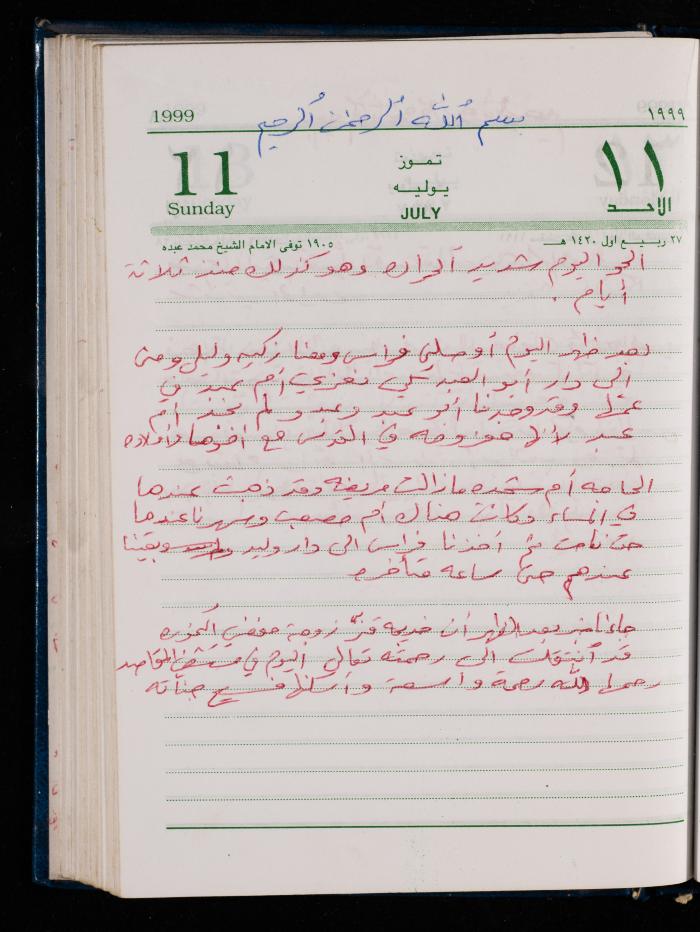 بسم الله الرحمن الرحيم
1999 ١٩٩٩
11 تموز ١١
يوليه
Sunday JULY الاحد
٢٧ ربيع اول ١٤٢٠ هـ ١٩٠٥ توفى الامام الشيخ محمد عبده
الجو اليوم شديد الحراره وهو كذلك منذ ثلاثة
أيام .
بعد ظهر اليوم أوصلني فراس ومعنا زكيه وليلى ومنى
الى دار أبو العبد لكي نعزي أم عبد في
عمها وقد وجدنا أبو عبد وعبد و لم نجد أم
عبد لأنها موجوده في القدس مع أخوها وأولاده
الحاجه أم شحده مازالت مريضه وقد ذهبت عندها
في المساء وكانت هناك أم مصعب وسهرنا عندها
حتى نامت ثم أخذنا فراس الى دار وليد وبقينا
عندهم حتى ساعه متأخره
جاءنا خبر بعد الظهر أن خديجه زوجة
قد أنتقلت الى رحمته تعالى اليوم في مستشفى المقاصد
رحمها الله رحمة واسعة وأسكنها فسيح جناته